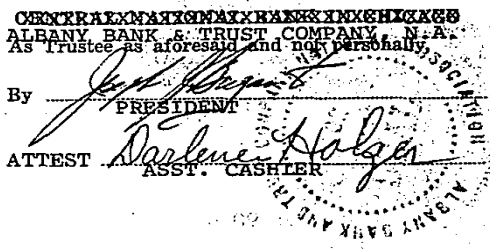 CENTRAL NATIONAL BANK IN CHICAGO
ALBANY BANK & TRUST COMPANY, N.A.
As Trustee as aforesaid and not personally,
By
PRESIDENT
ATTEST Darlene Holger
ASST. CASHIER
ASSOCIATION
ALBANY BANK AND TR